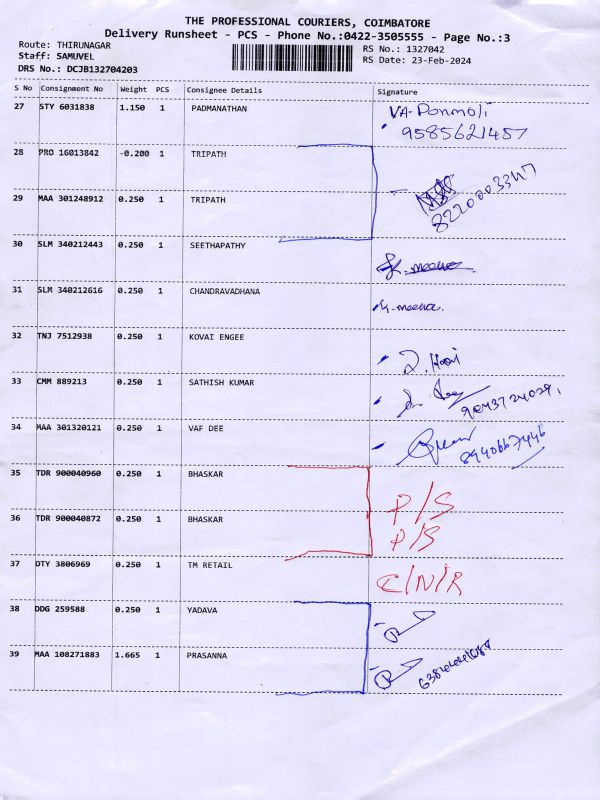 THE PROFESSIONAL COURIERS, COIMBATORE
Delivery Runsheet - PCS - Phone No.:0422-3505555 - Page No.:3
Route: THIRUNAGAR RS No.: 1327042
Staff: SAMUVEL RS Date: 23-Feb-2024
DRS No.: DCJB132704203
S No Consignment No Weight PCS Consignee Details Signature
27 STY 6031838 1.150 1 PADMANATHAN VA-Ponmoli
9585621457
28 PRO 16013842 -0.200 1 TRIPATH
29 MAA 301248912 0.250 1 TRIPATH 8220003347
30 SLM 340212443 0.250 1 SEETHAPATHY K. meena.
31 SLM 340212616 0.250 1 CHANDRAVADHANA K. meena.
32 TNJ 7512938 0.250 1 KOVAI ENGEE
33 CMM 889213 0.250 1 SATHISH KUMAR 9043724029.
34 MAA 301320121 0.250 1 VAF DEE 8940667446
35 TDR 900040960 0.250 1 BHASKAR P/S
36 TDR 900040872 0.250 1 BHASKAR P/S
37 OTY 3806969 0.250 1 TM RETAIL C/N/R
38 DDG 259588 0.250 1 YADAVA
39 MAA 108271883 1.665 1 PRASANNA